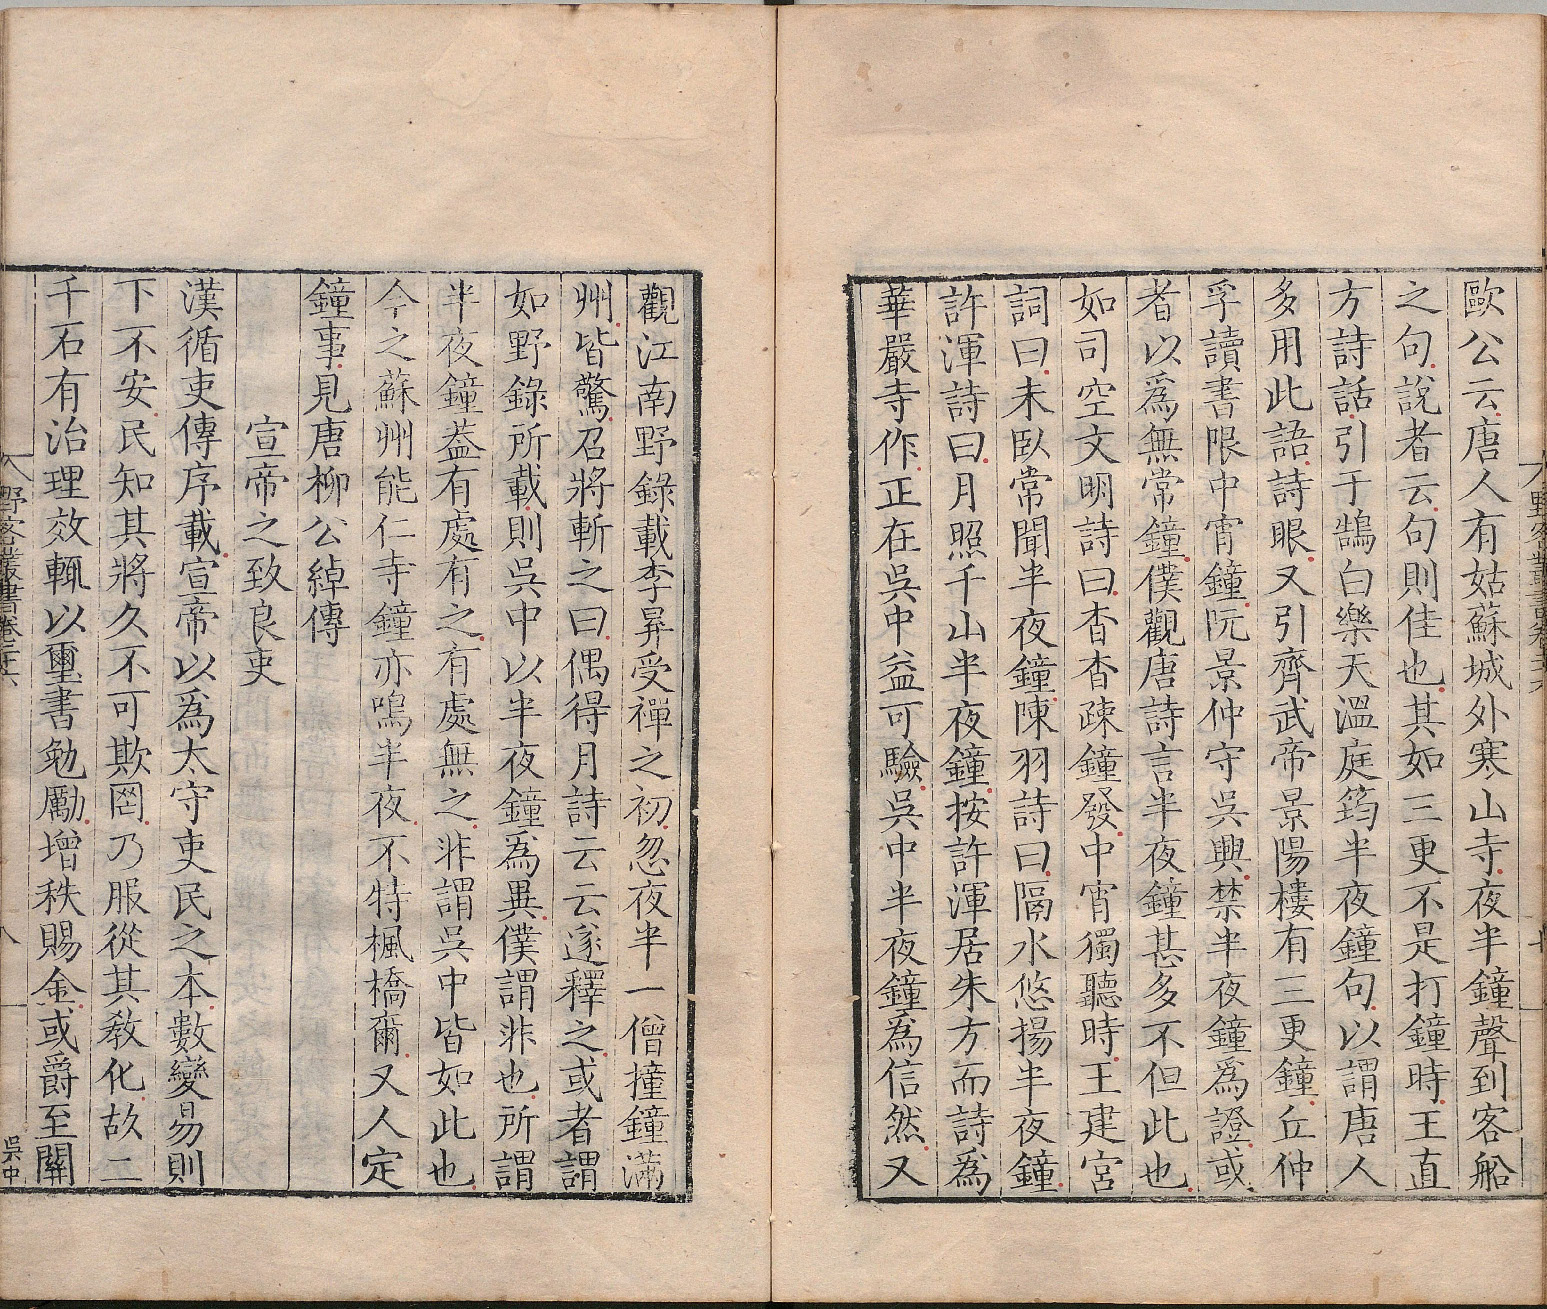 歐公云唐人有姑蘇城外寒山寺夜半鐘聲到客船
之句說者云句則佳也其如三更不是打鐘時王直
方詩話引于鵠白樂天溫庭筠半夜鐘句以謂唐人
多用此語詩眼又引齊武帝景陽樓有三更鐘丘仲
孚讀書限中宵鐘阮景仲守吳興禁半夜鐘為證或
者以為無常鐘僕觀唐詩言半夜鐘甚多不但此也
如司空文明詩曰杳杳疎鐘發中宵獨聽時王建宮
詞曰未臥常聞半夜鐘陳羽詩曰隔水悠揚半夜鐘
許渾詩曰月照千山半夜鐘按許渾居朱方而詩為
華嚴寺作正在吳中益可驗吳中半夜鐘為信然又
觀江南野錄載李昪受禪之初忽夜半一僧撞鐘滿
州皆驚召將斬之曰偶得月詩云云遂釋之或者謂
如野錄所載則吳中以半夜鐘為異僕謂非也所謂
半夜鐘蓋有處有之有處無之非謂吳中皆如此也
今之蘇州能仁寺鐘亦鳴半夜不特楓橋爾又人定
鐘事見唐柳公綽傳
宣帝之致良吏
漢循吏傳序載宣帝以為太守吏民之本數變易則
下不安民知其將久不可欺罔乃服從其教化故二
千石有治理效輒以璽書勉勵增秩賜金或爵至關
野客叢書卷二十六
八
吳中